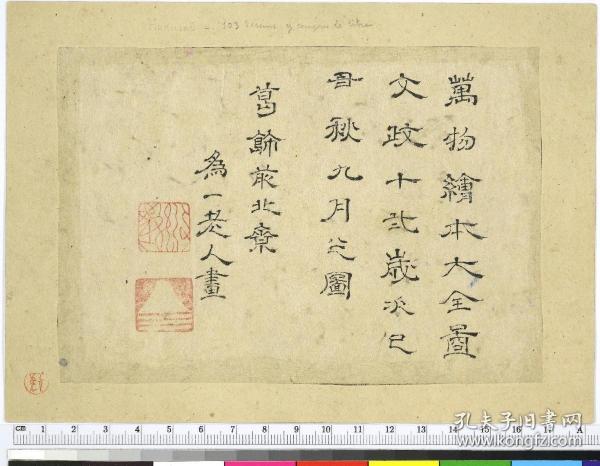 Hokusai - 103 dessins y compris le titre
萬物繪本大全圖
文政十弐歳次己
丑秋九月之圖
葛飾前北齋
為一老人畫
cm 1 2 3 4 5 6 7 8 9 10 11 12 13 14 15 16 17 A
孔夫子旧书网
www.kongfz.com